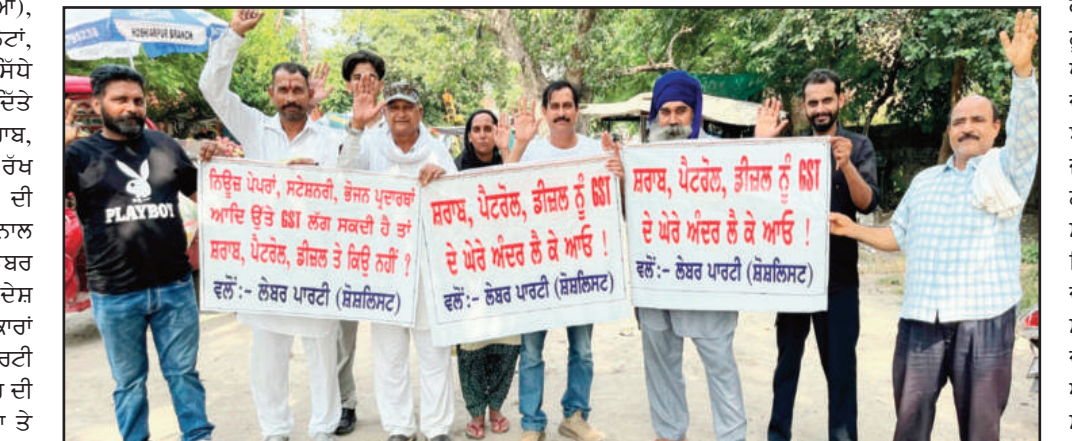 ਆਂ),
ਟਾਂ,
ਸਿੱਧੇ
ਦਿੱਤੇ
ਰਾਬ,
ਰੱਖ
ਦੀ
ਨਾਲ
ਬਰ
ਦੇਸ਼
ਕਾਰਾਂ
ਰਟੀ
ਦੀ
ਤੇ
HOSHIARPUR BRANCH
PLAYBOY
ਨਿਊਜ਼ ਪੇਪਰਾਂ, ਸਟੇਸ਼ਨਰੀ, ਭੋਜਨ ਪ੍ਰਦਾਰਥਾਂ
ਆਦਿ ਉੱਤੇ GST ਲੱਗ ਸਕਦੀ ਹੈ ਤਾਂ
ਸ਼ਰਾਬ, ਪੈਟਰੋਲ, ਡੀਜ਼ਲ ਤੇ ਕਿਉ ਨਹੀਂ ?
ਵਲੋਂ :- ਲੇਬਰ ਪਾਰਟੀ (ਸ਼ੋਸ਼ਲਿਸਟ)
ਸ਼ਰਾਬ, ਪੈਟਰੋਲ, ਡੀਜ਼ਲ ਨੂੰ GST
ਦੇ ਘੇਰੇ ਅੰਦਰ ਲੈ ਕੇ ਆਓ !
ਵਲੋਂ :- ਲੇਬਰ ਪਾਰਟੀ (ਸ਼ੋਸ਼ਲਿਸਟ)
ਸ਼ਰਾਬ, ਪੈਟਰੋਲ, ਡੀਜ਼ਲ ਨੂੰ GST
ਦੇ ਘੇਰੇ ਅੰਦਰ ਲੈ ਕੇ ਆਓ !
ਵਲੋਂ :- ਲੇਬਰ ਪਾਰਟੀ (ਸ਼ੋਸ਼ਲਿਸਟ)